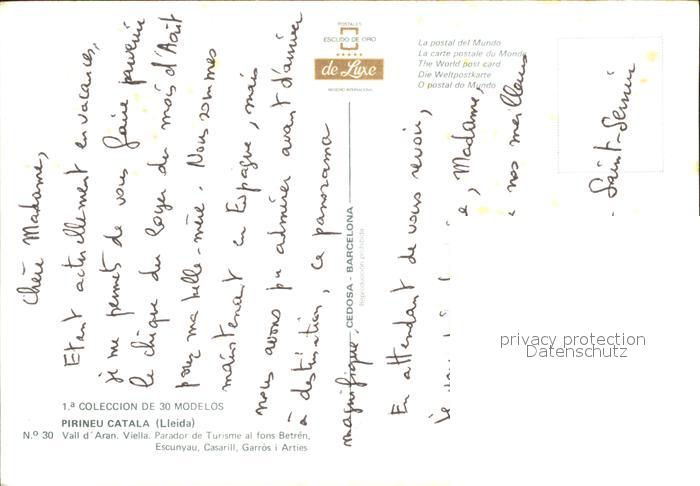 Chère Madame,
Etant actuellement en vacances,
je me permets de vous faire parvenir
le chèque du loyer du mois d'Août
pour ma belle-mère. Nous sommes
maintenant en Espagne, mais
nous avons pu admirer avant d'arriver
à destination, ce panorama
magnifique.
En attendant de vous revoir,
je
, Madame,
nos meilleurs
Saint-Sernin
POSTALES
ESCUDO DE ORO
de Luxe
REGISTRO INTERNACIONAL
La postal del Mundo
La carte postale du Monde
The World post card
Die Weltpostkarte
O postal do Mundo
CEDOSA - BARCELONA
Reproducción prohibida
privacy protection
Datenschutz
1.ª COLECCION DE 30 MODELOS
PIRINEU CATALA (Lleida)
N.º 30 Vall d'Aran. Viella. Parador de Turisme al fons Betrén,
Escunyau, Casarill, Garròs i Arties